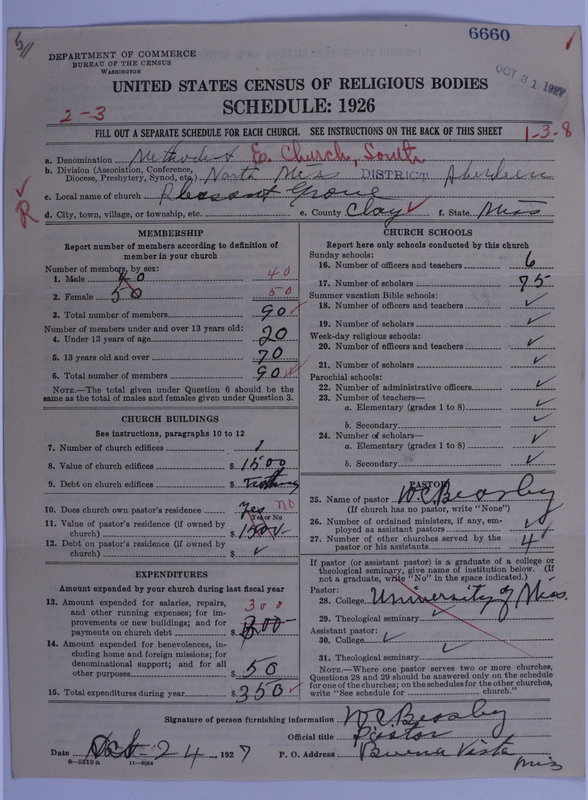 6660
DEPARTMENT OF COMMERCE
BUREAU OF THE CENSUS
WASHINGTON
OCT 31 1927
UNITED STATES CENSUS OF RELIGIOUS BODIES
SCHEDULE: 1926
2-3
FILL OUT A SEPARATE SCHEDULE FOR EACH CHURCH. SEE INSTRUCTIONS ON THE BACK OF THIS SHEET
1-3-8
a. Denomination Methodist E. Church, South
b. Division (Association, Conference, Diocese, Presbytery, Synod, etc.) North Miss DISTRICT Aberdeen
c. Local name of church Pleasant Grove
R
d. City, town, village, or township, etc. e. County Clay ✓ f. State Miss
MEMBERSHIP
Report number of members according to definition of
member in your church
Number of members, by sex:
1. Male 40 40
2. Female 50 50
3. Total number of members 90 ✓
Number of members under and over 13 years old:
4. Under 13 years of age 20
5. 13 years old and over 70
6. Total number of members 90 ✓
NOTE.—The total given under Question 6 should be the
same as the total of males and females given under Question 3.
CHURCH BUILDINGS
See instructions, paragraphs 10 to 12
7. Number of church edifices 1
8. Value of church edifices $ 1500
9. Debt on church edifices $ Nothing
10. Does church own pastor's residence yes no
Yes or No
11. Value of pastor's residence (if owned by
church) $
12. Debt on pastor's residence (if owned by
church) $ ✓
EXPENDITURES
Amount expended by your church during last fiscal year
13. Amount expended for salaries, repairs, 300
and other running expenses; for im-
provements or new buildings; and for
payments on church debt $ 300
14. Amount expended for benevolences, in-
cluding home and foreign missions; for
denominational support; and for all
other purposes $ 50
15. Total expenditures during year $ 350 ✓
CHURCH SCHOOLS
Report here only schools conducted by this church
Sunday schools:
16. Number of officers and teachers 6
17. Number of scholars 75
Summer vacation Bible schools:
18. Number of officers and teachers ✓
19. Number of scholars ✓
Week-day religious schools:
20. Number of officers and teachers ✓
21. Number of scholars ✓
Parochial schools:
22. Number of administrative officers ✓
23. Number of teachers—
a. Elementary (grades 1 to 8) ✓
b. Secondary ✓
24. Number of scholars—
a. Elementary (grades 1 to 8) ✓
b. Secondary ✓
PASTOR
25. Name of pastor W C Beasley
(If church has no pastor, write "None")
26. Number of ordained ministers, if any, em-
ployed as assistant pastors ✓
27. Number of other churches served by the
pastor or his assistants 4
If pastor (or assistant pastor) is a graduate of a college or
theological seminary, give name of institution below. (If
not a graduate, write "No" in the space indicated.)
Pastor:
28. College University of Miss.
29. Theological seminary ✓
Assistant pastor:
30. College ✓
31. Theological seminary ✓
NOTE.—Where one pastor serves two or more churches,
Questions 28 and 29 should be answered only on the schedule
for one of the churches; on the schedules for the other churches,
write "See schedule for church."
Signature of person furnishing information W C Beasley
Official title Pastor
Date Oct 24, 1927 P. O. Address Buena Vista
Miss
8-5319a 11-9024